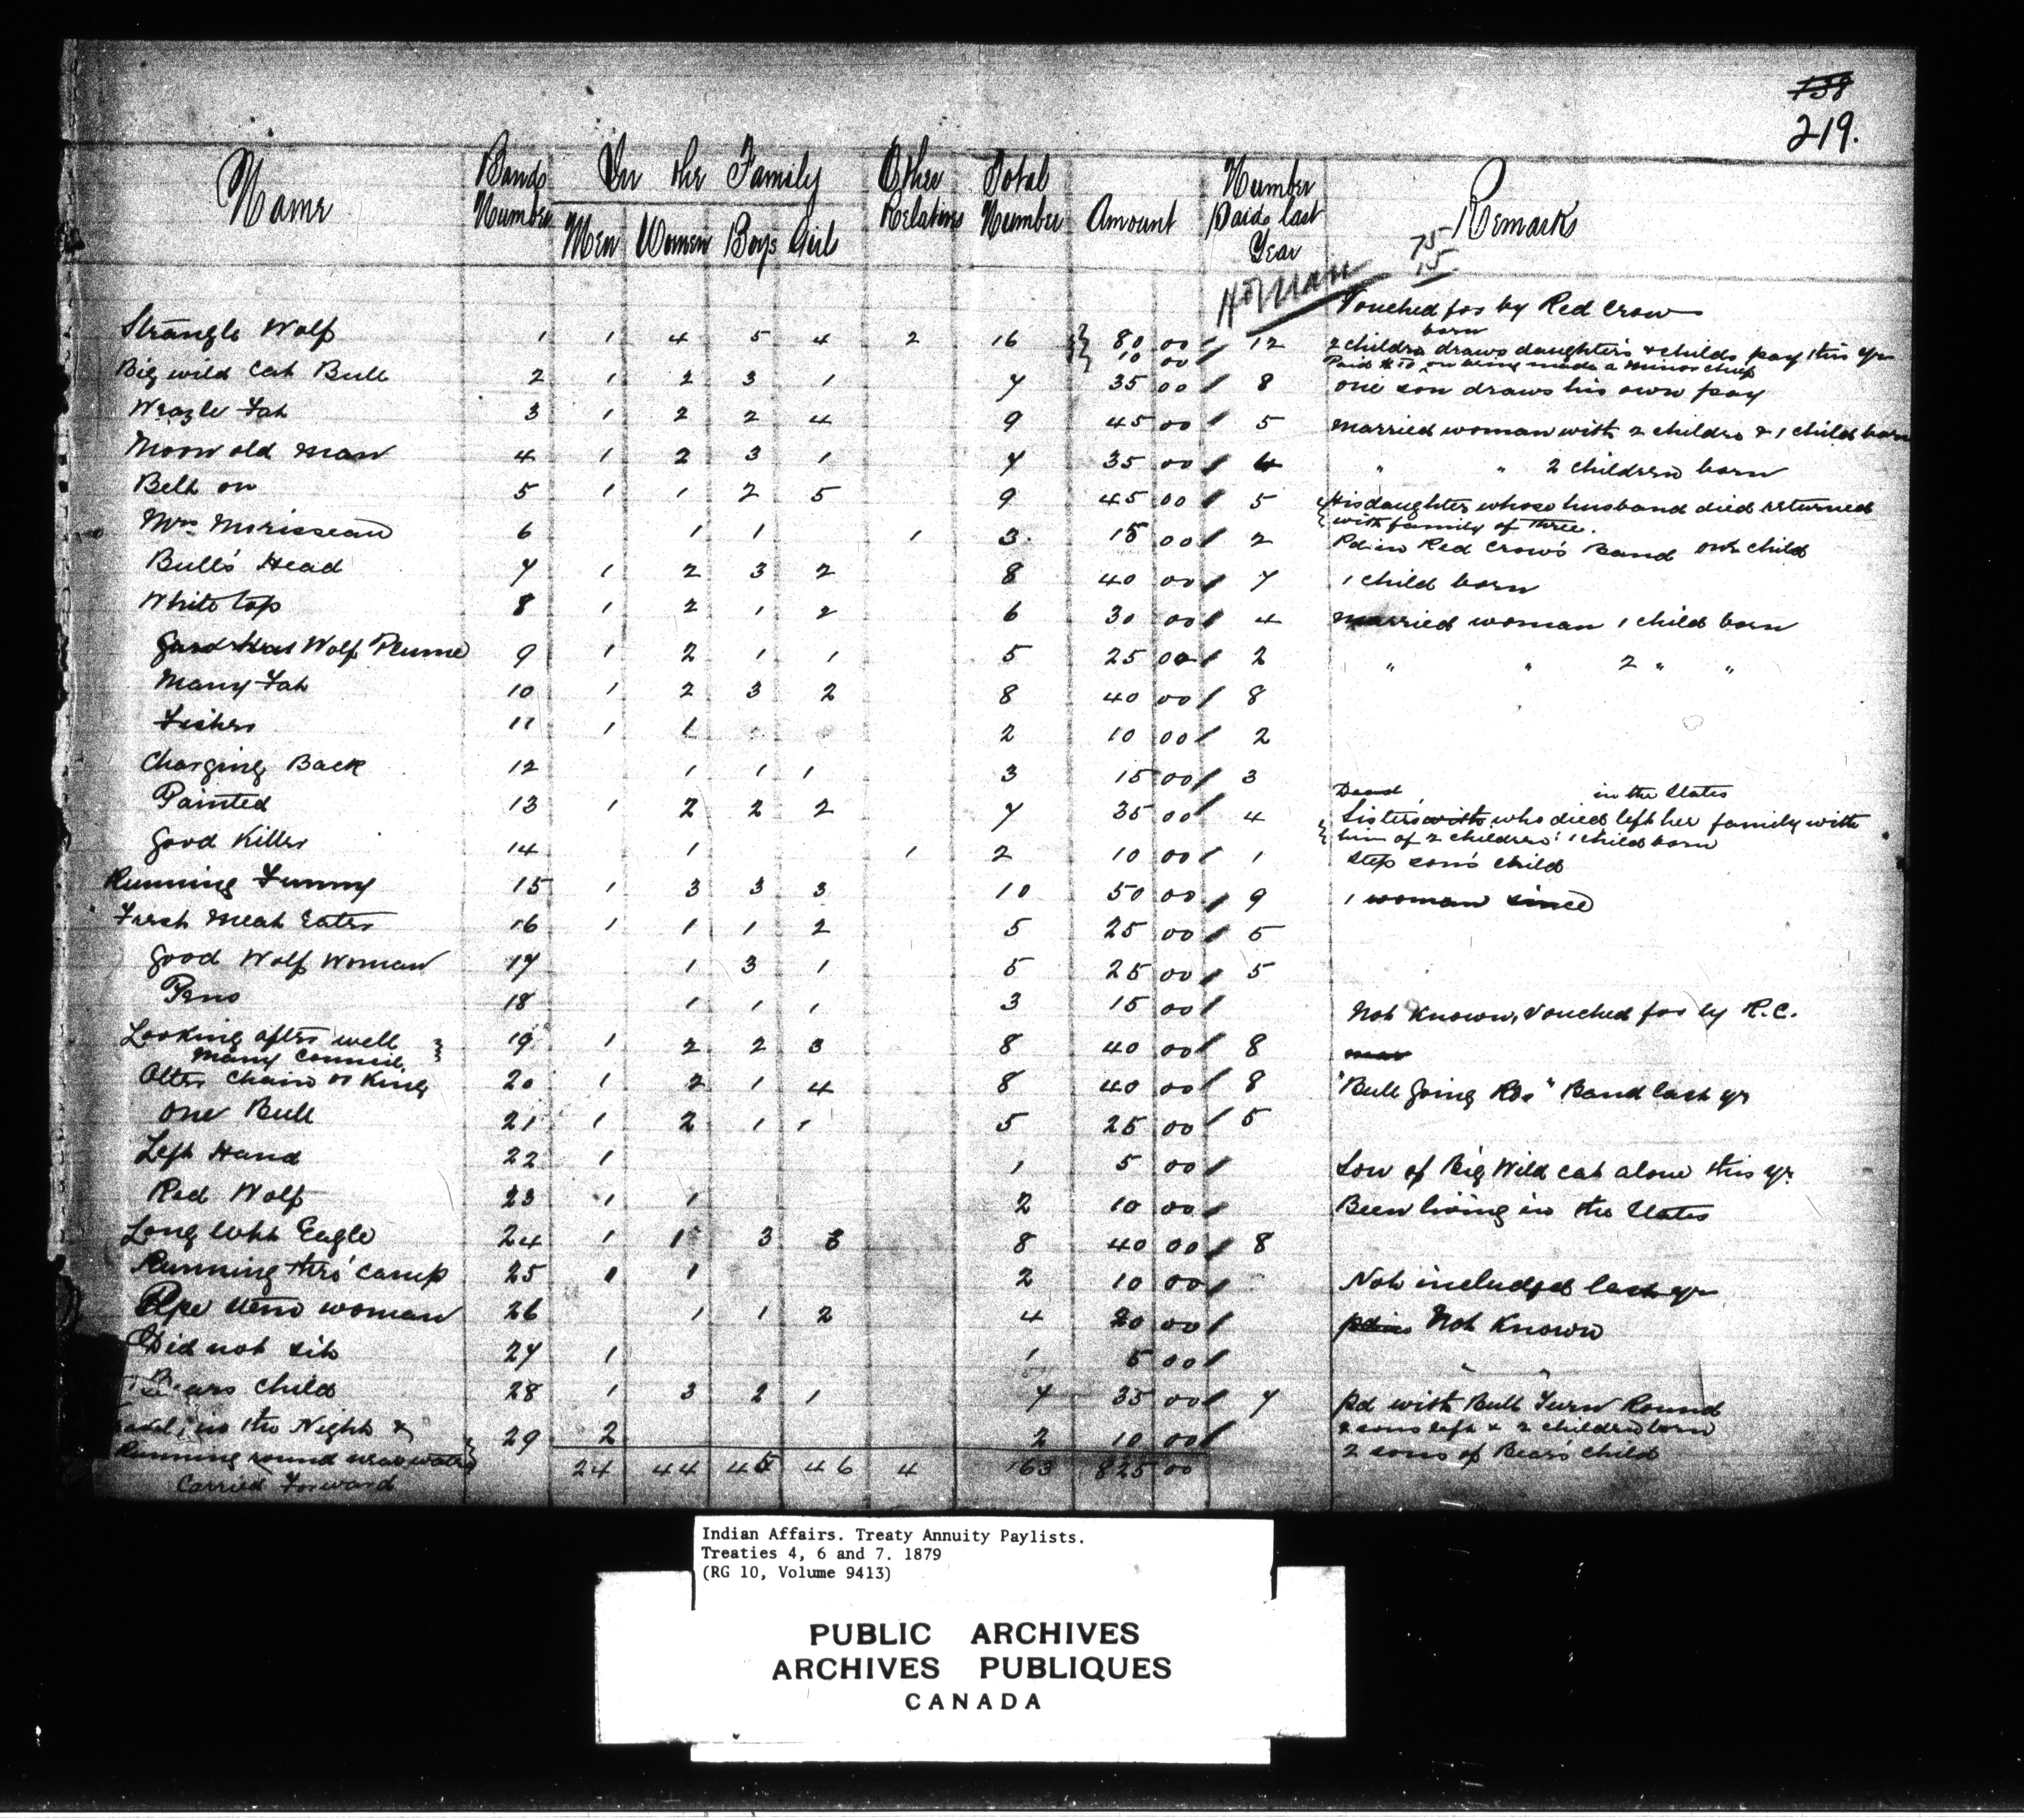 138
219.
Name Band Number In the Family Other Relatives Total Number Amount Number Paid last Year Remarks
Men Women Boys Girls
75
15
Vouched for by Red Crow
Strangle Wolf 1 1 4 5 4 2 16 80 00 12 2 children born draws daughter's & childs pay this yr
10 00 Paid $10 on being made a minor chief
Big wild Cat Bull 2 1 2 3 1 7 35 00 8 one son draws his own pay
Weazle Fat 3 1 2 2 4 9 45 00 5 married woman with 2 childre & 1 child born
Moon old man 4 1 2 3 1 7 35 00 4 " " 2 children born
Belt on 5 1 1 2 5 9 45 00 5 His daughter whose husband died returned
with family of three.
Mrs Morisseau 6 1 1 1 3 15 00 2 Pd in Red Crow's Band one child
Bull's Head 7 1 2 3 2 8 40 00 7 1 child born
White top 8 1 2 1 2 6 30 00 4 married woman 1 child born
Wolf Plume 9 1 2 1 1 5 25 00 2 " " 2 " "
Many Fat 10 1 2 3 2 8 40 00 8
Fisher 11 1 1 2 10 00 2
Charging Back 12 1 1 1 3 15 00 3
Dead in the States
Painted 13 1 2 2 2 7 35 00 4 Sister with who died left her family with
him of 2 children: 1 child born
Good Killer 14 1 1 2 10 00 1 Step son's child
Running Funny 15 1 3 3 3 10 50 00 9 1 woman since
Fresh Meat Eater 16 1 1 1 2 5 25 00 5
Good Wolf Woman 17 1 3 1 5 25 00 5
18 1 1 1 3 15 00 Not Known, Vouched for by R.C.
Looking after well 19 1 2 2 3 8 40 00 8
Many Council
Otter Chain or King 20 1 2 1 4 8 40 00 8 "Bull Going " Band last yr
One Bull 21 1 2 1 1 5 25 00 5
Left Hand 22 1 1 5 00 Son of Big Wild cat alone this yr.
Red Wolf 23 1 1 2 10 00 Been living in the States
Long Eagle 24 1 1 3 3 8 40 00 8
Running thro' camp 25 1 1 2 10 00 Not included last yr
woman 26 1 1 2 4 20 00 Not Known
Did not sit 27 1 1 5 00 " "
Bears child 28 1 3 2 1 7 35 00 7 Pd with Bull Turn Round
2 sons left & 2 children born
in the Night & 29 2 2 10 00 2 sons of Bear's child
Running round near water
Carried Forward 24 44 45 46 4 163 825 00
Indian Affairs. Treaty Annuity Paylists.
Treaties 4, 6 and 7. 1879
(RG 10, Volume 9413)
PUBLIC ARCHIVES
ARCHIVES PUBLIQUES
CANADA